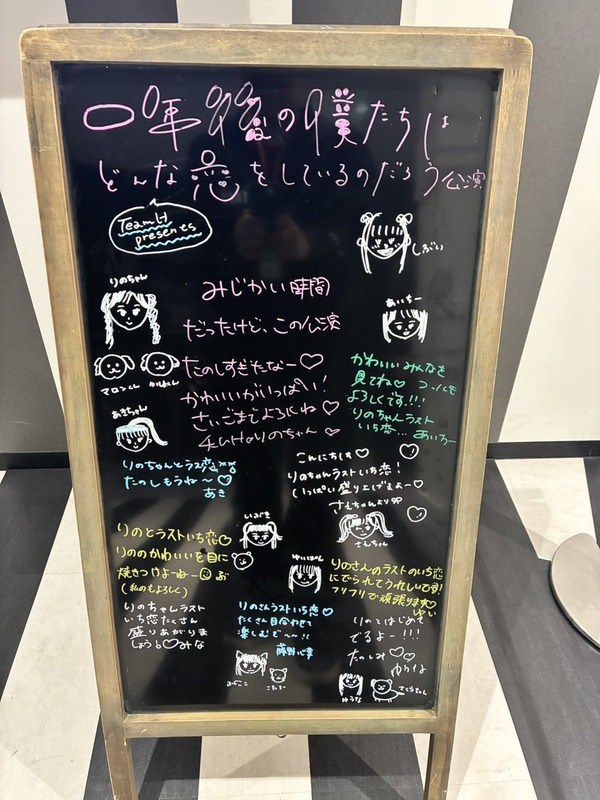 一年後の僕たちは
どんな恋をしているのだろう公演
Team H
presents
しぶい
りのちゃん
みじかい時間
だったけど、この公演
たのしすぎたなー♡
かわいいがいっぱい!
さいごまでよろしくね♡
チームHのりのちゃん♡
マロンくん
あいちー
かわいいみんなを
見てね♡ コールも
よろしくです!!!
りのちゃんラスト
いち恋… あいちー
あきちゃん
りのちゃんとラス恋
たのしもうね〜♡
あき
こんにちは♡
りのちゃんラストいち恋!
いっぱい盛り上げるよー♡
さえちゃんより
さえちゃん
いぶき
りのとラストいち恋♡
りののかわいいを目に
焼きつけよーねー
(私のもよろしく)
ゆいはん
りのさんのラストのいち恋
にでられてうれしいです!
フリフリで頑張ります♡
ゆい
りのちゃんラスト
いち恋たくさん
盛りあがりま
しょうる♡みな
りのさんラストいち恋♡
たくさん目合わせて
楽しむで〜!!
藤野心葉
りのとはじめて
でるよー!!!
たのしみ♡♡
ゆうな
ゆうな
さくらちゃん